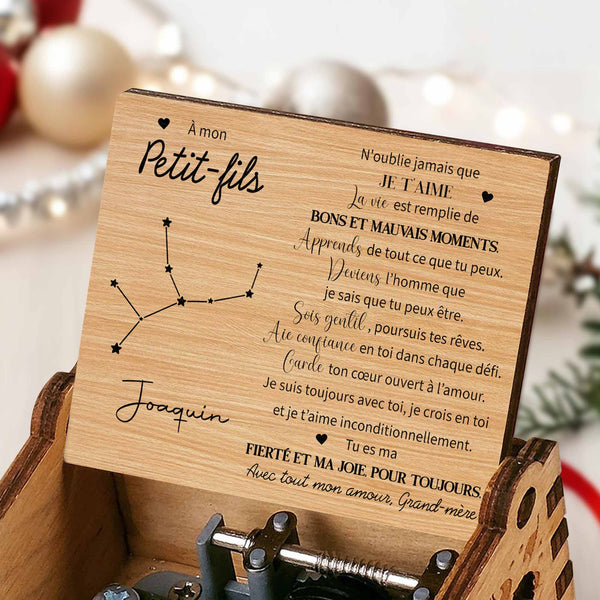 À mon
Petit-fils
Joaquin
N'oublie jamais que
JE T'AIME
La vie est remplie de
BONS ET MAUVAIS MOMENTS.
Apprends de tout ce que tu peux.
Deviens l'homme que
je sais que tu peux être.
Sois gentil, poursuis tes rêves.
Aie confiance en toi dans chaque défi.
Garde ton cœur ouvert à l'amour.
Je suis toujours avec toi, je crois en toi
et je t'aime inconditionnellement.
Tu es ma
FIERTÉ ET MA JOIE, POUR TOUJOURS.
Avec tout mon amour, Grand-mère